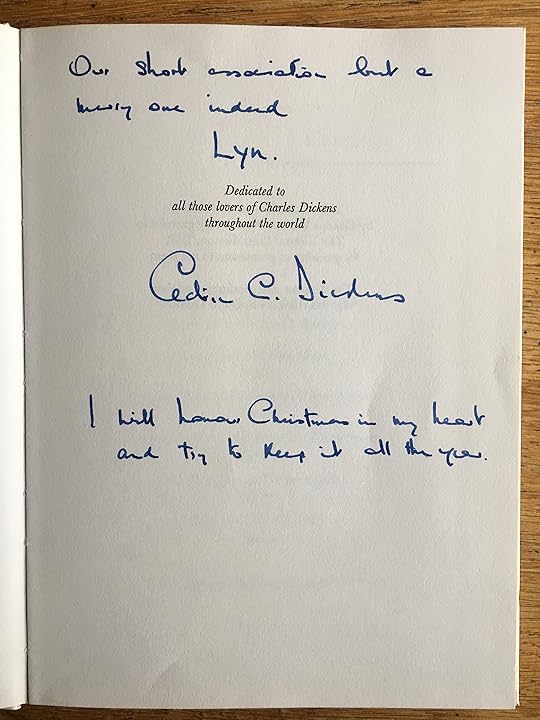 Our short association but a
merry one indeed
Lyn.
Dedicated to
all those lovers of Charles Dickens
throughout the world
Cedric C. Dickens
I will honour Christmas in my heart
and try to keep it all the year.